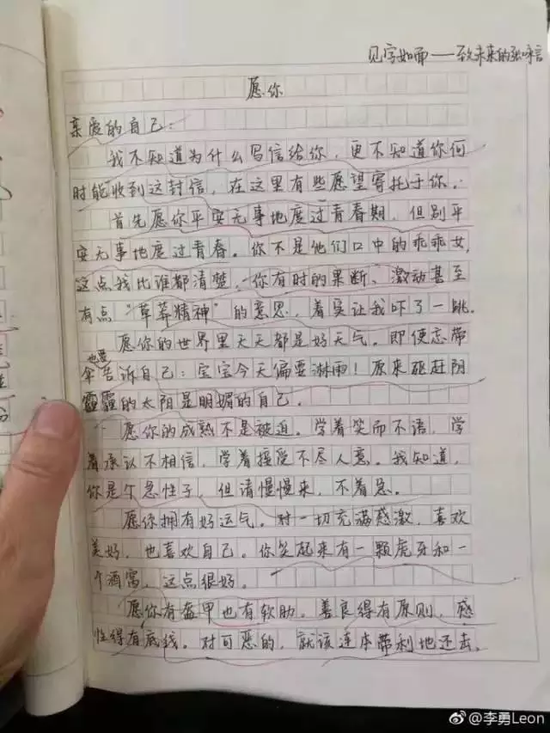 见字如面——致未来的张咏言
愿你
亲爱的自己：
我不知道为什么写信给你，更不知道你何
时能收到这封信，在这里有些愿望寄托于你。
首先愿你平安无事地度过青春期，但别平
安无事地度过青春。你不是他们口中的乖乖女，
这点我比谁都清楚，你有时的果断、激动甚至
有点“草莽精神”的意思，着实让我吓了一跳。
愿你的世界里天天都是好天气。即使忘带
伞也要告诉自己：宝宝今天偏要淋雨！原来驱赶阴
霾的太阳是明媚的自己。
愿你的成熟不是被迫。学着笑而不语，学
着承认不相信，学着接受不尽人意。我知道，
你是个急性子，但请慢慢来，不着急。
愿你拥有好运气。对一切充满感激，喜欢
美好，也喜欢自己。你笑起来有一颗虎牙和一
个酒窝，这点很好。
愿你有盔甲也有软肋。善良得有原则，感
性得有底线。对可恶的，就该连本带利地还击。
@李勇Leon